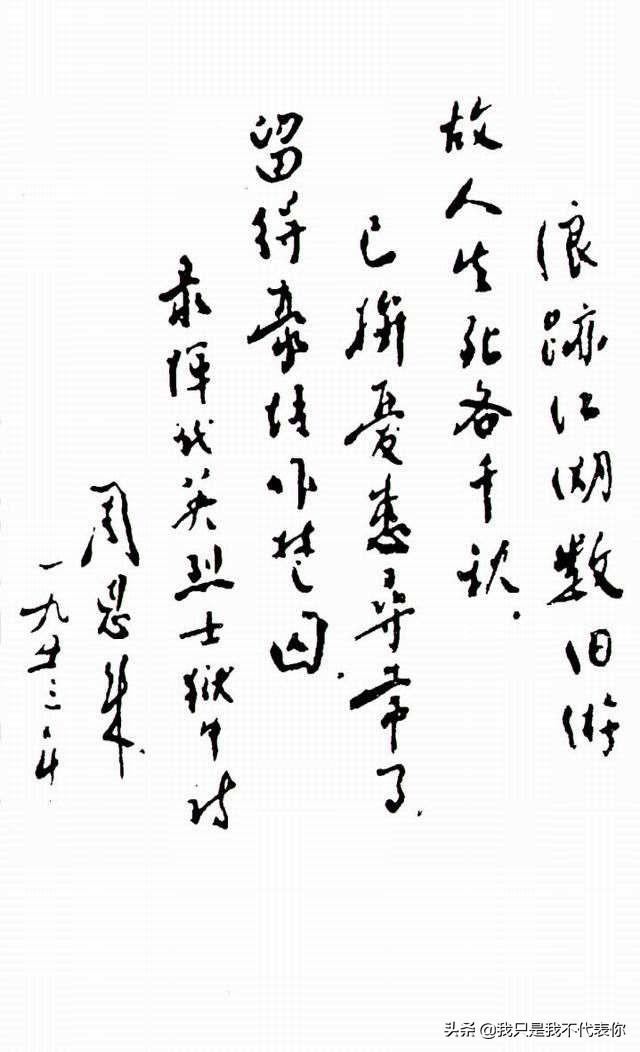 浪跡江湖数旧游
故人生死各千秋.
已擯憂患尋常了.
留得豪情作楚囚.
录恽代英烈士狱中诗
周恩来.
一九五三
头条 @我只是我不代表你